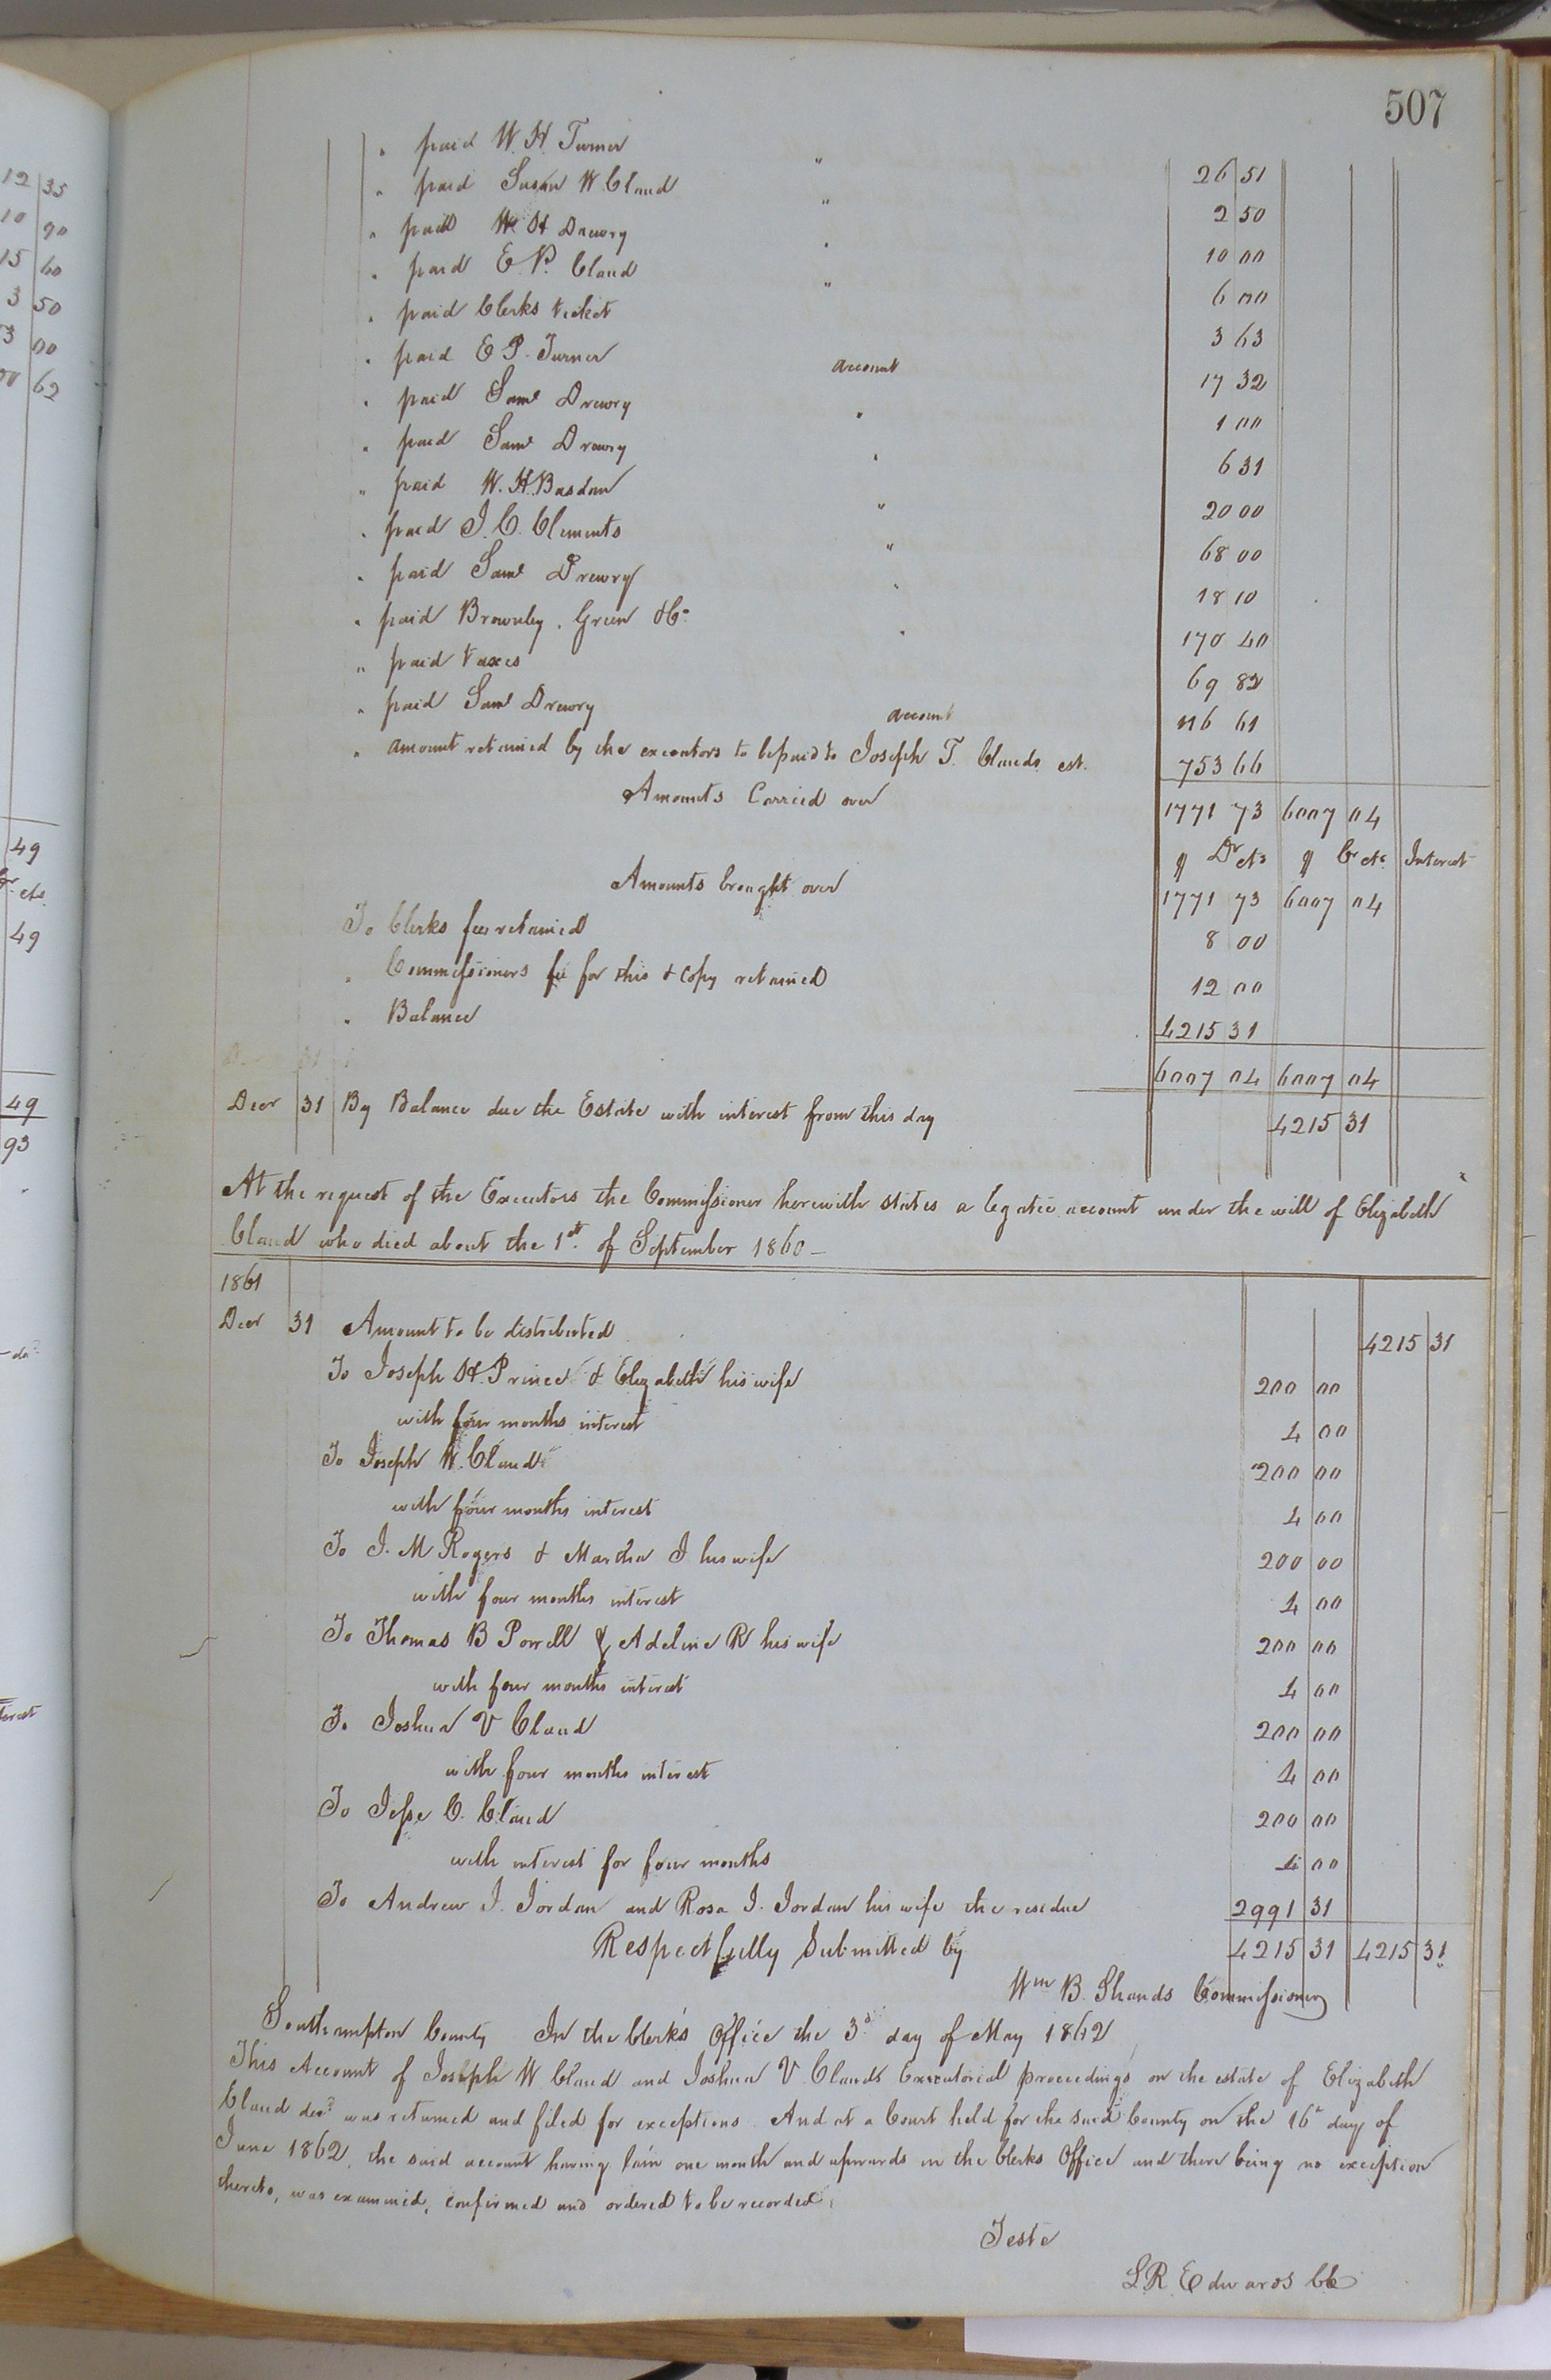 507
" paid W. H. Turner " 26 51
" paid Susan W. Claud " 2 50
" paid W. H Drewry " 10 00
" paid E. P. Claud " 6 00
" paid Clerks ticket 3 63
" paid E P. Turner account 17 32
" paid Saml Drewry " 1 00
" paid Saml Drewry " 6 31
" paid W. H. Basdon " 20 00
" paid J. C. Clements " 68 00
" paid Saml Drewry " 18 10
" paid Brownley, Green & Co " 170 40
" paid taxes 69 82
" paid Saml Drewry account 116 61
" amount retained by the executors to be paid to Joseph T. Clauds est. 753 66
Amounts Carried over 1771 73 6007 04
$ Dr cts $ Cr cts Interest
Amounts brought over 1771 73 6007 04
To Clerks fees retained 8 00
" Commissioners fee for this & copy retained 12 00
" Balance 4215 31
6007 04 6007 04
Decr 31 By Balance due the Estate with interest from this day 4215 31
At the request of the Executors the Commissioner herewith states a legatee account under the will of Elizabeth
Claud who died about the 1st of September 1860 –
1861
Decr 31 Amount to be distributed 4215 31
To Joseph H. Prince & Elizabeth his wife 200 00
with four months interest 4 00
To Joseph W. Claud 200 00
with four months interest 4 00
To J. M Rogers & Martha J his wife 200 00
with four months interest 4 00
To Thomas B Powell & Adeline R his wife 200 00
with four months interest 4 00
To Joshua V Claud 200 00
with four months interest 4 00
To Jesse C. Claud 200 00
with interest for four months 4 00
To Andrew J. Jordan and Rosa J. Jordan his wife the residue 2991 31
Respectfully Submitted by 4215 31 4215 31
Wm B. Shands Commissioner
Southampton County In the Clerk's Office the 3d day of May 1862
This Account of Joseph W Claud and Joshua V Clauds Executorial proceedings on the estate of Elizabeth
Claud decd was returned and filed for exceptions. And at a Court held for the said County on the 16th day of
June 1862, the said account having lain one month and upwards in the Clerks Office and there being no exception
thereto, was examined, confirmed and ordered to be recorded.
Teste
L R Edwards CC